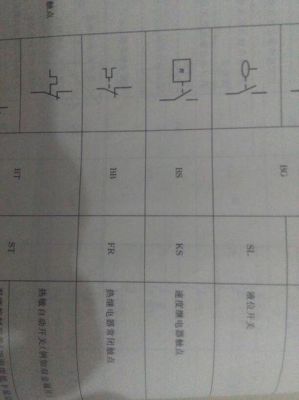 BG
SL
液位开关
n
BS
KS
速度继电器触点
BB
FR
热继电器常闭触点
BT
ST
热敏自动开关(例如双金属片)
触点